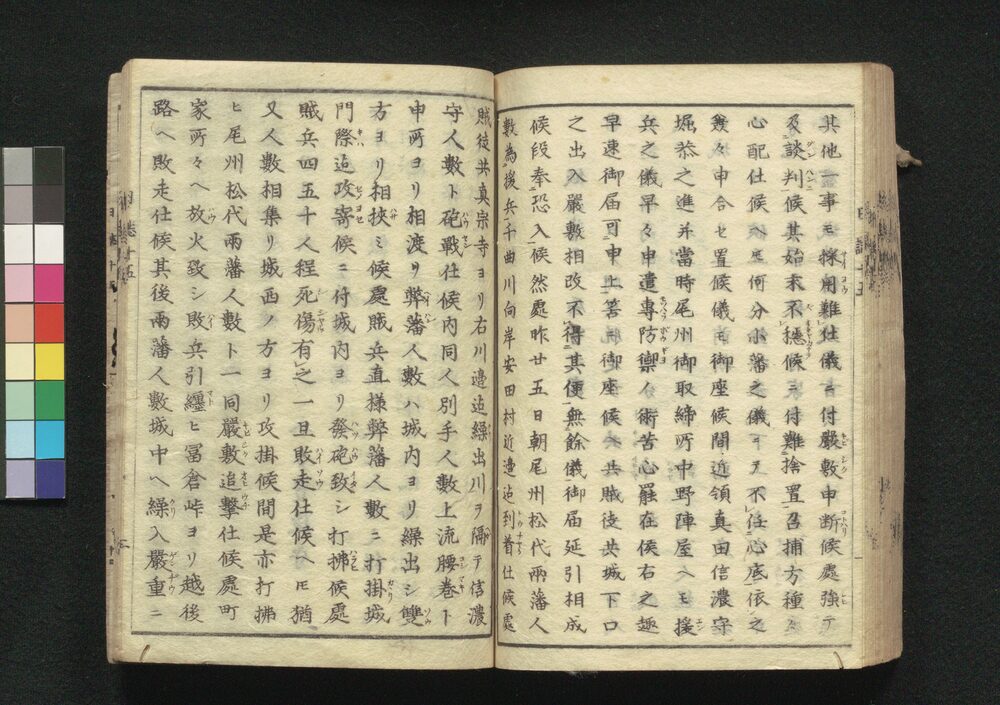 其他一事モ採用難仕儀ニ付嚴敷申断候處強テ
及談判候其始末不穩候ニ付難捨置召捕方種々
心配仕候ヘ𪜈何分小藩之儀イヲ不任心底依之
兼々申合セ置候儀モ御座候間近領真田信濃守
堀恭之進并當時尾州御取締所中野陣屋ヘモ援
兵之儀早々申遣專防禦ノ術苦心罷在候右之趣
早速御届可申上筈ニ御座候ヘ共賊徒共城下口
之出入嚴敷相改不得其便無餘儀御届延引相成
候段奉恐入候然處昨廿五日朝尾州松代兩藩人
數為援兵千曲川向岸安田村近邊迠到着仕候處
賊徒共真宗寺ヨリ右川邊迠繰出川ヲ隔テ信濃
守人數ト砲戰仕候内同人別手人數上流腰巻ト
申所ヨリ相渡リ弊藩人數ハ城内ヨリ繰出シ雙
方ヨリ相挾ミ候處賊兵直様弊藩人數ニ打掛城
門際迠攻寄候ニ付城内ヨリ發砲致シ打拂候處
賊兵四五十人程死傷有之一旦敗走仕候ヘ𪜈猶
又人數相集リ城西ノ方ヨリ攻掛候間是亦打拂
ヒ尾州松代兩藩人數ト一同嚴敷追擊仕候處町
家所々ヘ放火致シ敗兵引纏ヒ冨倉峠ヨリ越後
路ヘ敗走仕候其後兩藩人數城中ヘ繰入嚴重ニ